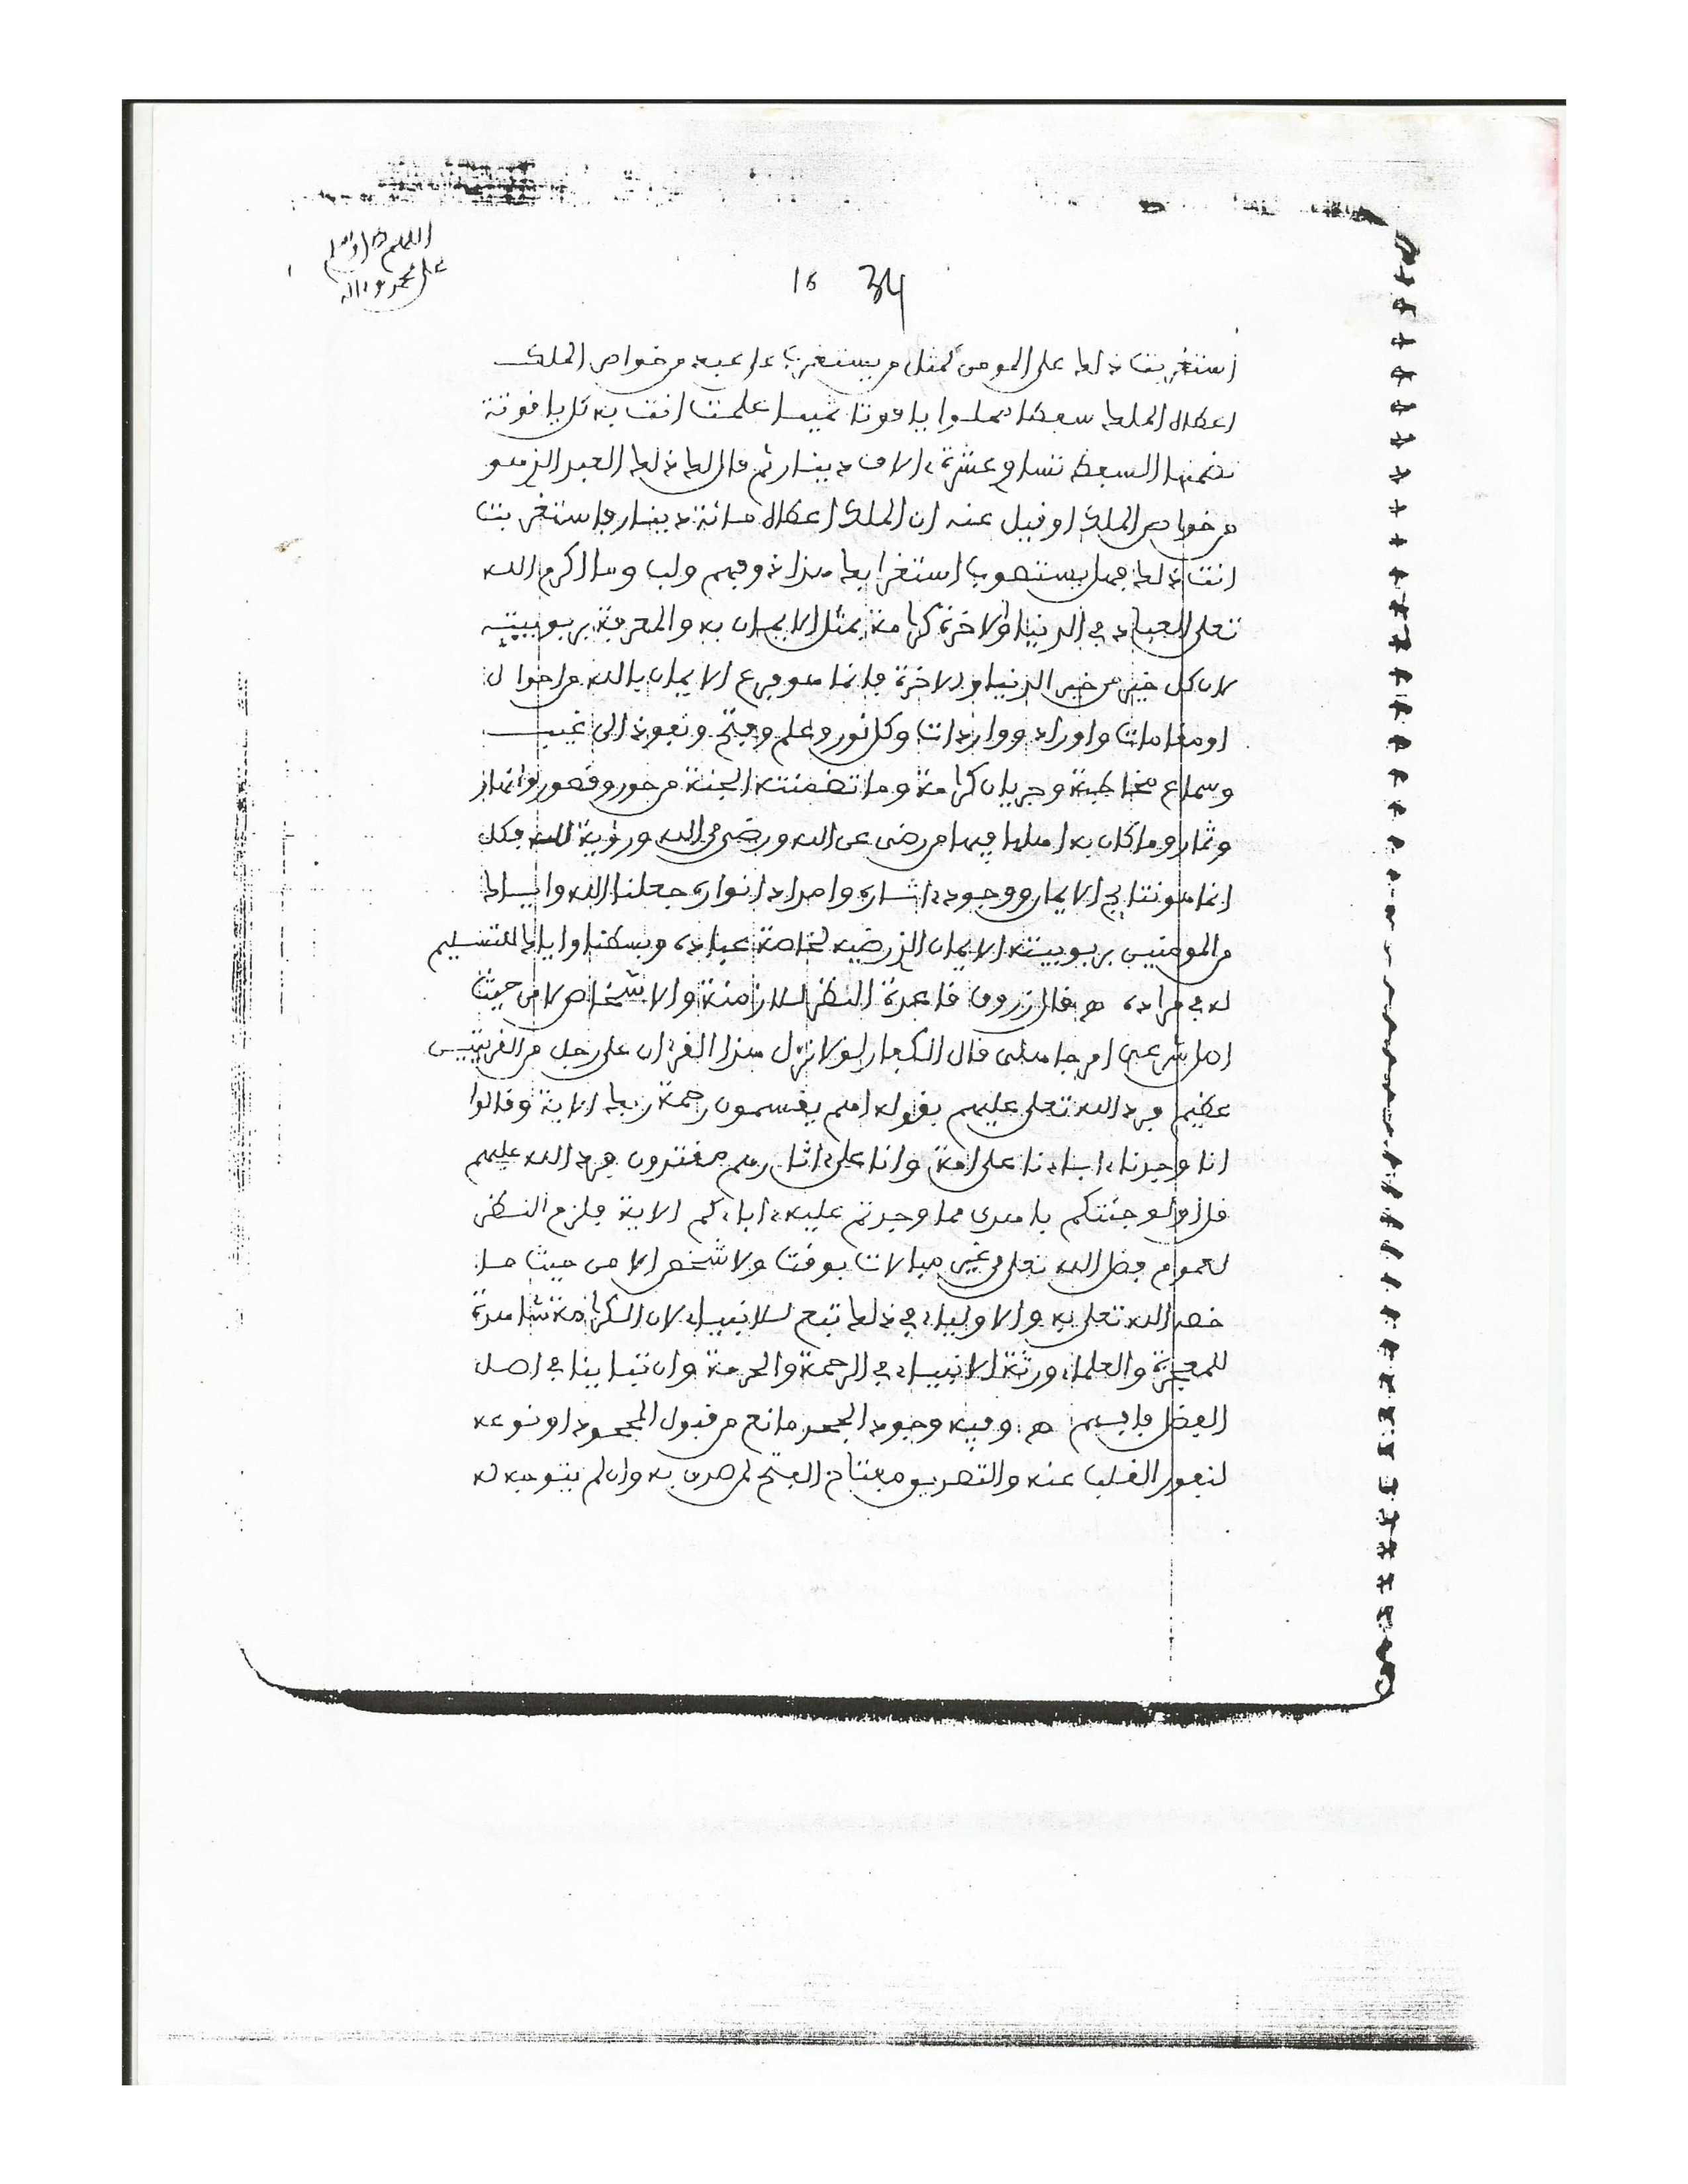 اللهم صل وسلم
على محمد وءاله
16 34
استغربت ذلك على المومن كمثل من يستغرب على عبد من خواص الملك
اعطاه الملك سفطا مملوا يافوتا نفيسا علمت انت به كل يافوتة
تضمنها السفط تساوي عشرة ءالاف دينار ثم فال لك ذلك العبد الذي هو
من خواص الملك او فيل عنه ان الملك اعطاه مائة دينار فاستغربت
انت ذلك فهل يستصوب استغرابك هذا ذو فهم ولب وما اكرم الله
تعلى العباد في الدنيا والاخرة كرامة بمثل الايمان به والمعرفة بربوبيته
لان كل خير من خير الدنيا والاخرة فانما هو فرع الايمان بالله من احوال
او مفامات واوراد وواردات وكل نور وعلم وفتح ونفوذ الى غيب
وسماع مخاطبة وجريان كرامة وما تضمنته الجنة من حور وفصور وانهار
وثمار وما كان به اهلها فيها من رضى عن الله ورضى من الله ورؤية لله فكل
انما هو نتايج الايمان ووجود ءاثاره وامداد انواره جعلنا الله واياك
من المومنين بربوبيته الايمان الذي رضيه لخاصة عباده وبسطنا واياك للتسليم
له في مراده هـ فال زروق فاعدة النظر للازمنة والاشخاص لا من حيث
اصل شرعي امر جاهلى فال الكفار لولا نزل هذا الفرءان على رجل من الفريتين
عظيم فرد الله تعلى عليهم بفوله اهم يفسمون رحمة ربك الاية وفالوا
انا وجدنا ءاباءنا على امة وانا على ءاثارهم مفتدون فرد الله عليهم
فل او لو جئتكم باهدى مما وجدتم عليه ءاباءكم الاية فلزم النظر
لعموم فضل الله تعلى من غير مبالات بوفت ولا شخص الا من حيث ما
خصه الله تعلى به والاولياء في ذلك تبع للانبياء لان الكرامة شاهدة
للمعجزة والعلماء ورثة الانبياء في الرحمة والحرمة وان تباينا في اصل
الفضل فابهم هـ وفيه وجود الجحد مانع من فبول المجحود او نوعه
لنفور الفلب عنه والتصديق مفتاح الفتح لمن صدق به وان لم يتوجه له